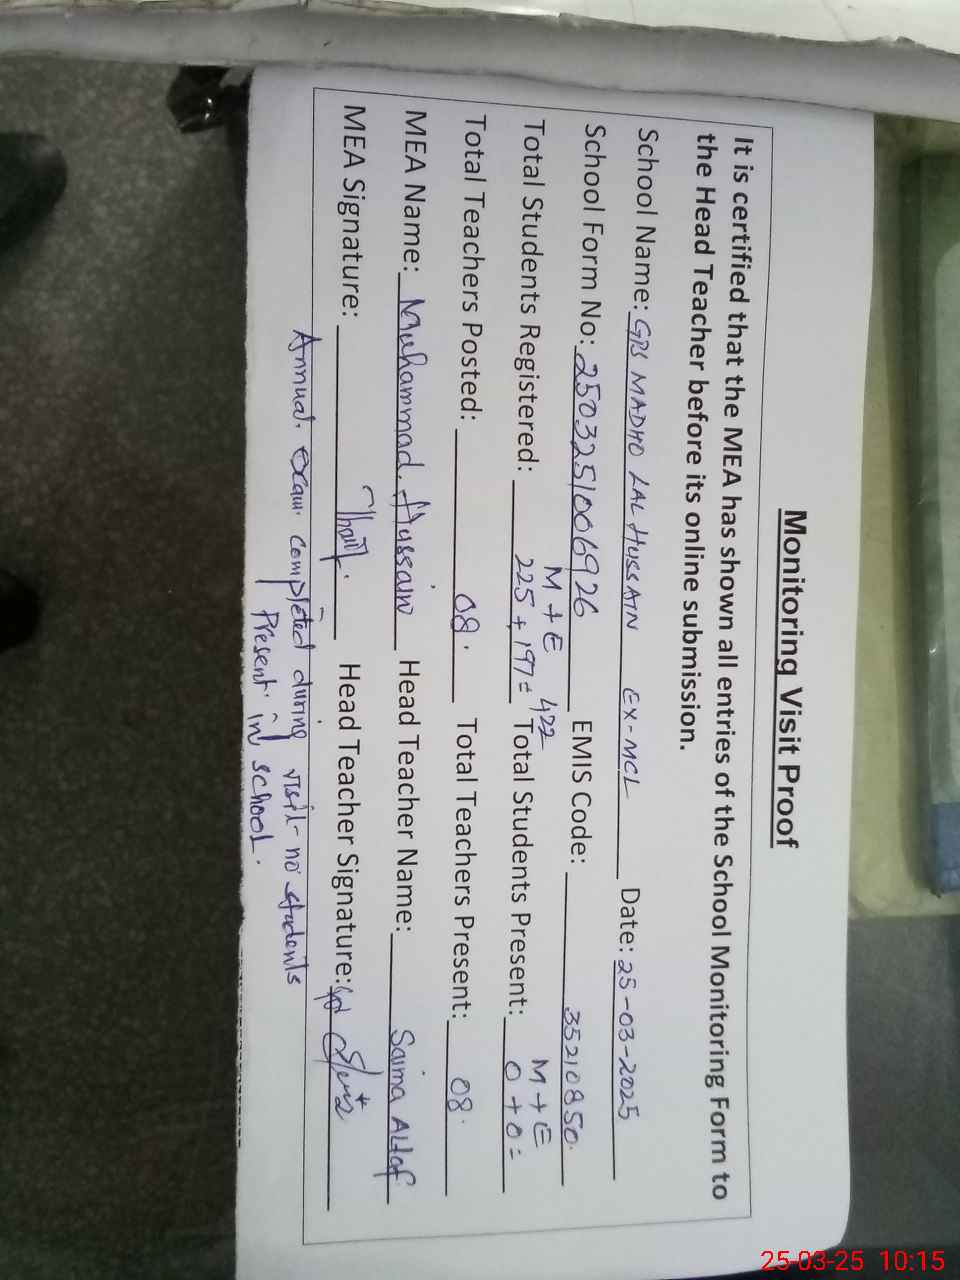 Monitoring Visit Proof
It is certified that the MEA has shown all entries of the School Monitoring Form to
the Head Teacher before its online submission.
School Name: GPS MADHO LAL HUSSAIN EX-MCL Date: 25-03-2025
School Form No: 2503251006926 EMIS Code: 35210850
M + E M + E
Total Students Registered: 225 + 197 = 422 Total Students Present: 0 + 0 =
Total Teachers Posted: 08. Total Teachers Present: 08.
MEA Name: Muhammad Hussain Head Teacher Name: Saima Altaf
MEA Signature: Head Teacher Signature:
Annual exam completed during visit - no students
Present in school.
25-03-25 10:15